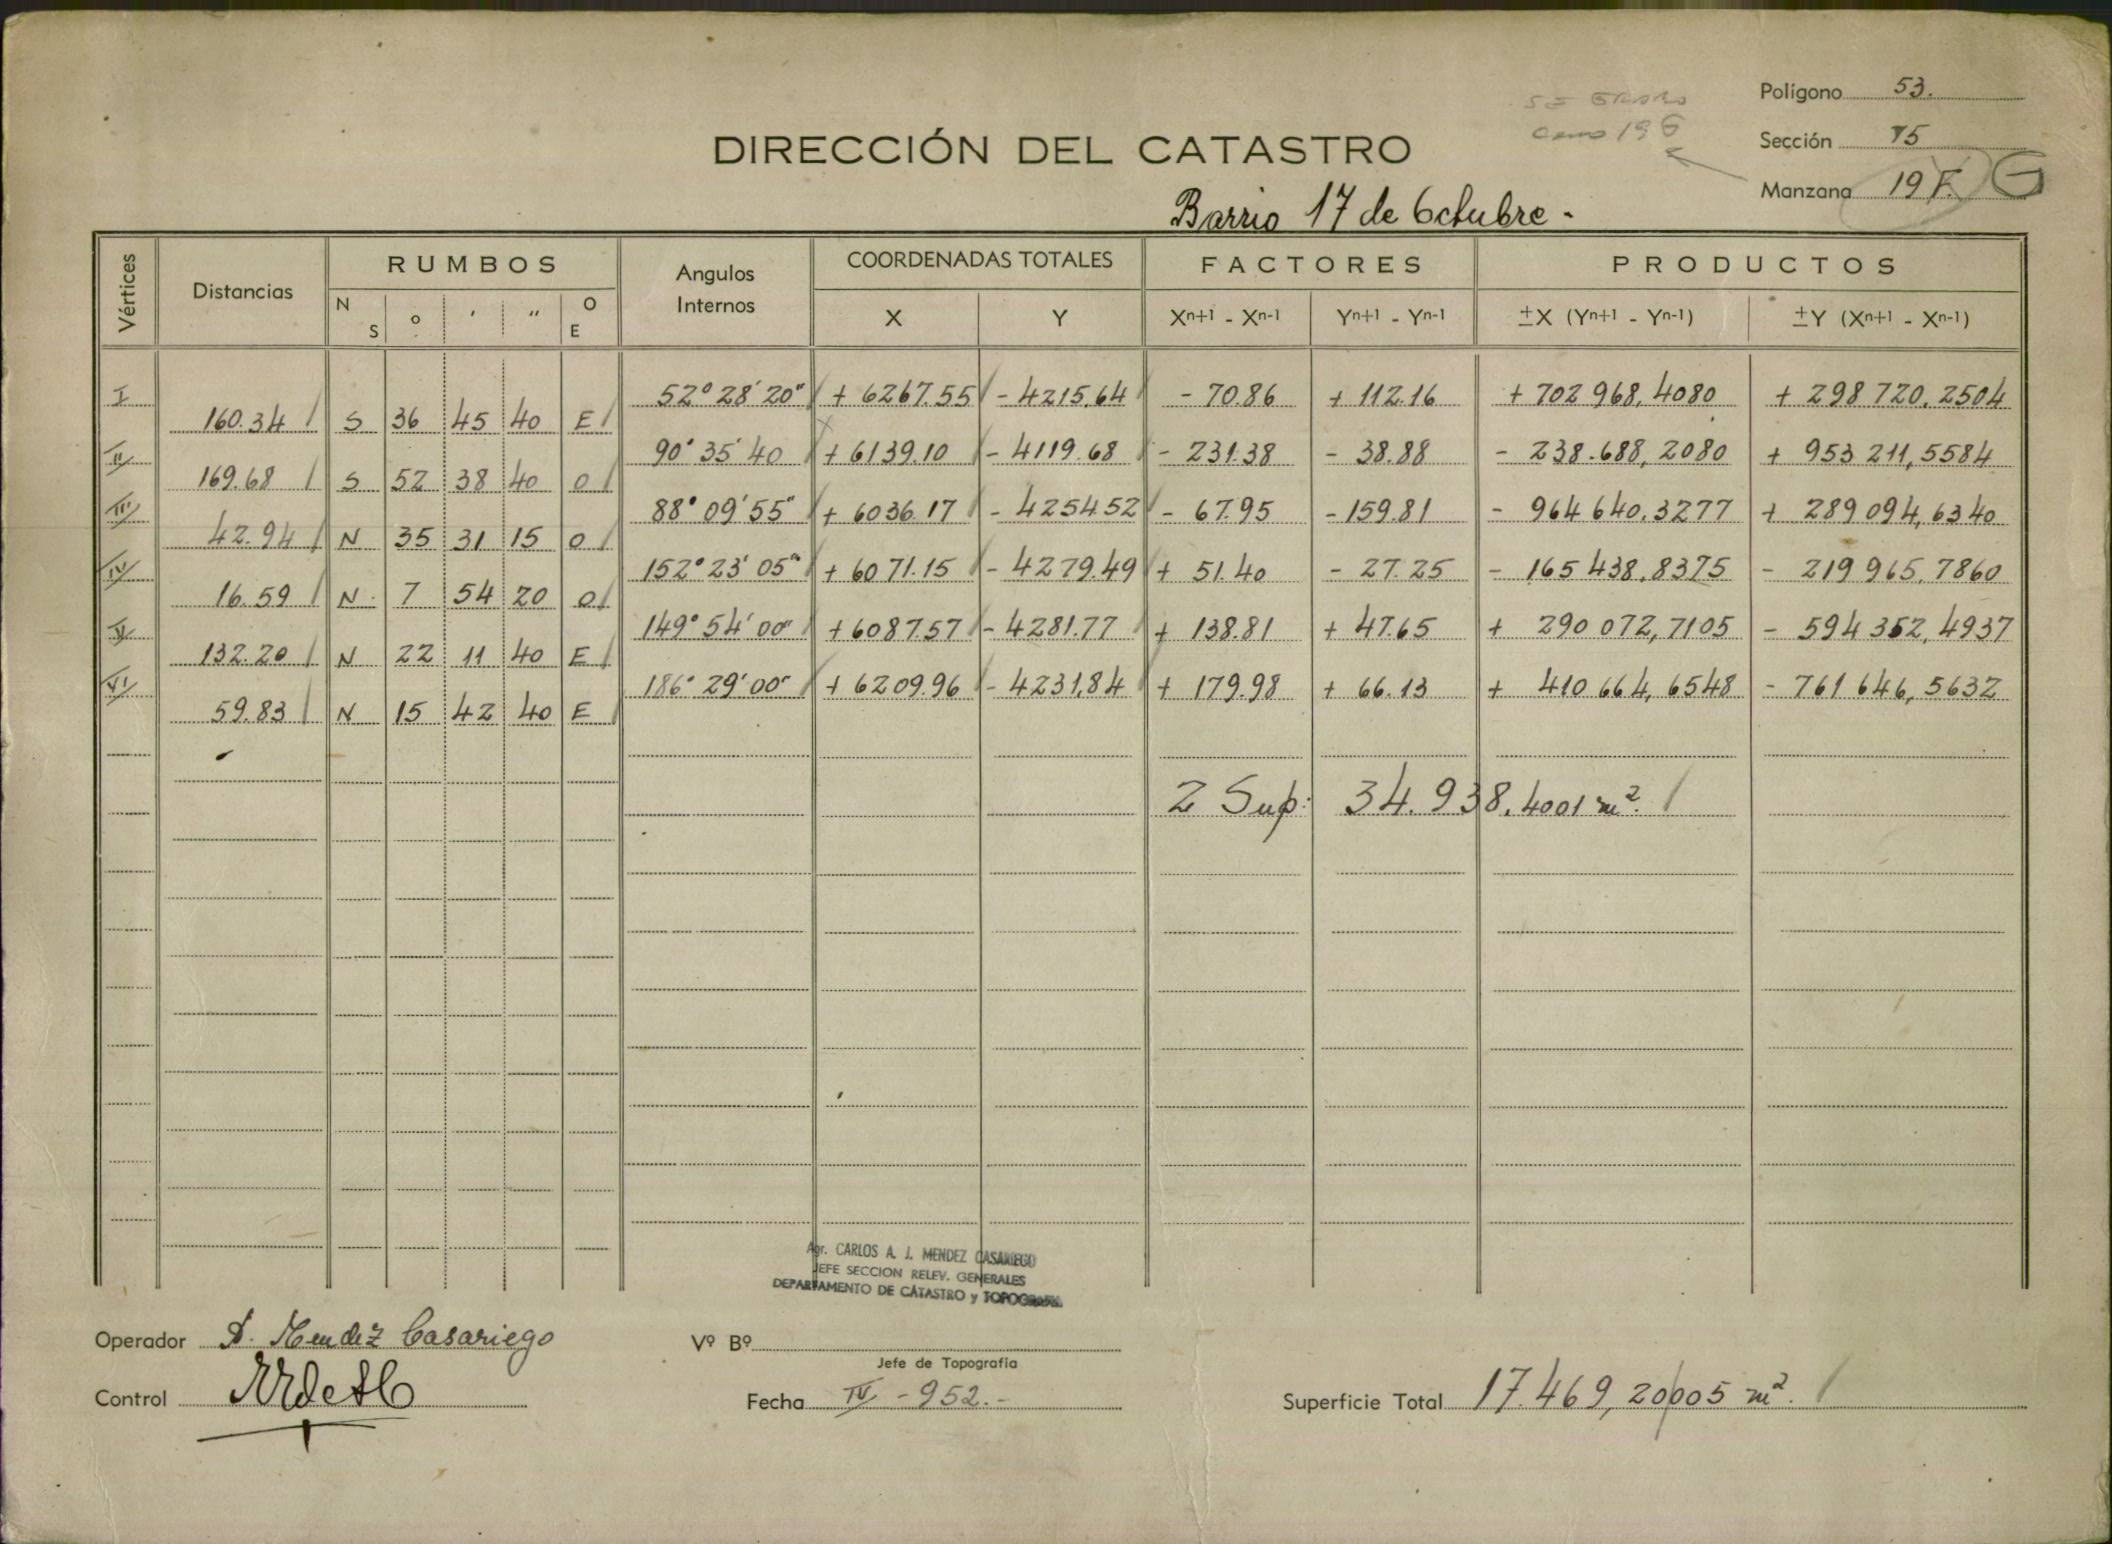 Polígono 53.
Sección 15
Manzana 19 F. G
como 19 G
DIRECCIÓN DEL CATASTRO
Barrio 17 de Octubre.-
Vértices Distancias RUMBOS Angulos Internos COORDENADAS TOTALES FACTORES PRODUCTOS
N S ° ' " O E X Y Xn+1 - Xn-1 Yn+1 - Yn-1 ±X (Yn+1 - Yn-1) ±Y (Xn+1 - Xn-1)
I 52° 28' 20" + 6267.55 - 4215.64 - 70.86 + 112.16 + 702 968,4080 + 298 720,2504
160.34 S 36 45 40 E
II 90° 35' 40 + 6139.10 - 4119.68 - 231.38 - 38.88 - 238.688,2080 + 953 211,5584
169.68 S 52 38 40 O
III 88° 09' 55" + 6036.17 - 4254.52 - 67.95 - 159.81 - 964 640,3277 + 289 094,6340
42.94 N 35 31 15 O
IV 152° 23' 05" + 6071.15 - 4279.49 + 51.40 - 27.25 - 165 438,8375 - 219 965,7860
16.59 N 7 54 20 O
V 149° 54' 00" + 6087.57 - 4281.77 + 138.81 + 47.65 + 290 072,7105 - 594 352,4937
132.20 N 22 11 40 E
VI 186° 29' 00" + 6209.96 - 4231,84 + 179.98 + 66.13 + 410 664,6548 - 761 646,5632
59.83 N 15 42 40 E
2 Sup: 34.938,4001 m².
Agr. CARLOS A. J. MENDEZ CASARIEGO
JEFE SECCION RELEV. GENERALES
DEPARTAMENTO DE CATASTRO y TOPOGRAFIA
Operador D. Mendez Casariego
Vº Bº
Jefe de Topografía
Control
Fecha IV - 952.-
Superficie Total 17.469,20005 m².